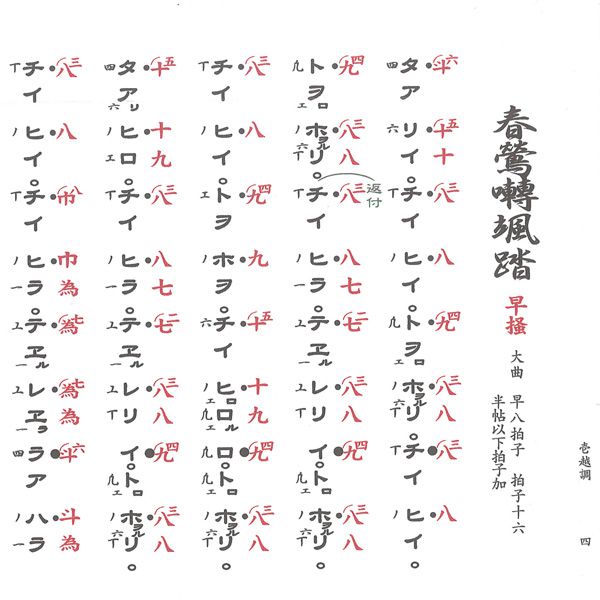 壱越調 四
春鶯囀颯踏 早掻 大曲 早八拍子 拍子十六
半帖以下拍子加
六斗 五十十 三八 八 四九 三八八 三八 八
タア リイ。チイ ヒイ。トヲロ ホヲルリ。チイ ヒイ。
返付
四九 三八八 三八 八七 二七 三八八 四九 三八八
トヲロ ホヲルリ。チイ ヒラ。テヱル レリ イ。トロ ホヲルリ。
三八 八 四九 九 五十 十九 四九 三八八
チイ ヒイ。トヲ ホヲ。チイ ヒロロル ロ。トロ ホヲルリ。
五十 十九 三八 八七 二七 三八八 四九 三八八
タアリ ヒロ。チイ ヒラ。テヱル レリ イ。トロ ホヲルリ。
三八 八 八巾 巾為 七為 七為為 六斗 斗為
チイ ヒイ。チイ ヒラ。テヱル レヱラ ラア ハラ